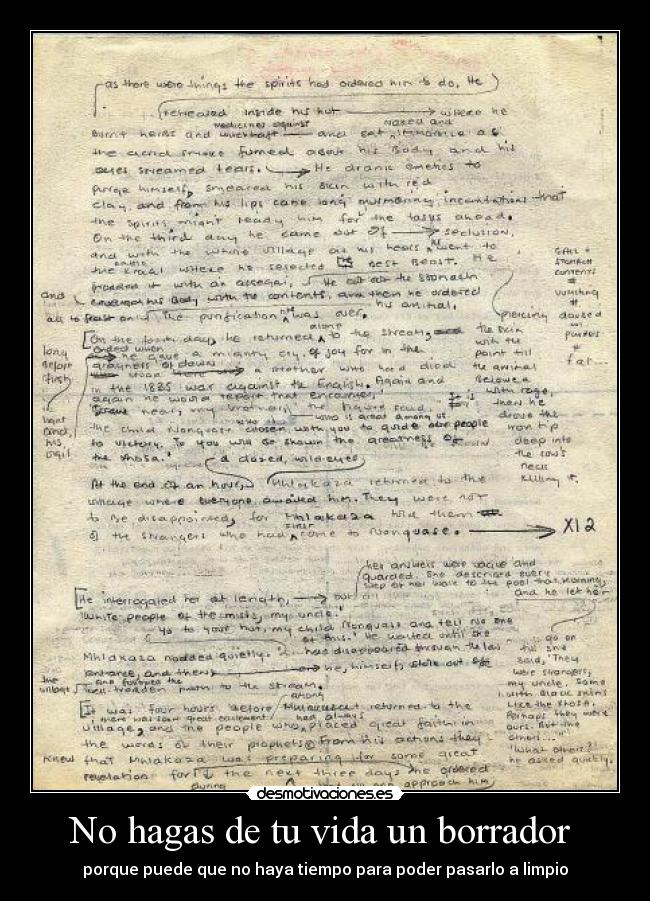 as there were things the spirits had ordered him to do. He
retreated inside his hut where he
medicines against naked and
burnt herbs and witchcraft and sat
the acrid smoke fumed about his body and his
eyes streamed tears. He drank emetics to
purge himself, smeared his skin with red
clay and from his lips came long murmuring incantations that
the spirits might ready him for the tasks ahead.
On the third day he came out of seclusion,
and with the whole village at his heels went to
the kraal where he selected best beast. He
prodded it with an assegai,
the stomach
and his body with the contents, and then he ordered
all to feast on his animal.
The purification was over.
On the fourth day, he returned to the stream,
alone
he gave a mighty cry of joy for in the
grayness of dawn
a brother who had died
in the 1835 war against the English. Again and
again he would report that encounter.
who is great among us
the child Nongquase chosen with you to guide our people
to victory. To you will be shown the greatness of
the Xhosa.'
a dazed, wild-eyed
At the end of an hour, Mhlakaza returned to the
village where everyone awaited him. They were not
to be disappointed, for Mhlakaza told them
of the strangers who had come to Nonquase.
X12
long
before
first
light
and
his
vigil
gall +
stomach
contents
#
vomiting
#
daubed
piercing
the skin
with the
point till
the animal
bellowed
with rage,
then he
drove the
iron tip
deep into
the cow's
neck
killing it.
fat...
her answers were vague and
guarded. She described every
step of her walk to the pool that morning,
and he let her
He interrogated her at length,
'White people of the mists, my uncle.'
'Go to your hut, my child Nonquase and tell no one
of this.' He waited until she
Mhlakaza nodded quietly. had disappeared through the low
entrance, and then he, himself,
and followed the
the village's well-trodden path to the stream.
go on
till she
said, 'They
were strangers,
my uncle. Some
with black skins
like the Xhosa.
Perhaps they were
ours. But the
others...'
'What others?'
he asked quickly.
It was four hours before Mhlakaza returned to the
among
there was great excitement
village, and the people who had always placed great faith in
the words of their prophets. From his actions they
knew that Mhlakaza was preparing for some great
revelation for the next three days he ordered
during
approach him
desmotivaciones.es
No hagas de tu vida un borrador
porque puede que no haya tiempo para poder pasarlo a limpio